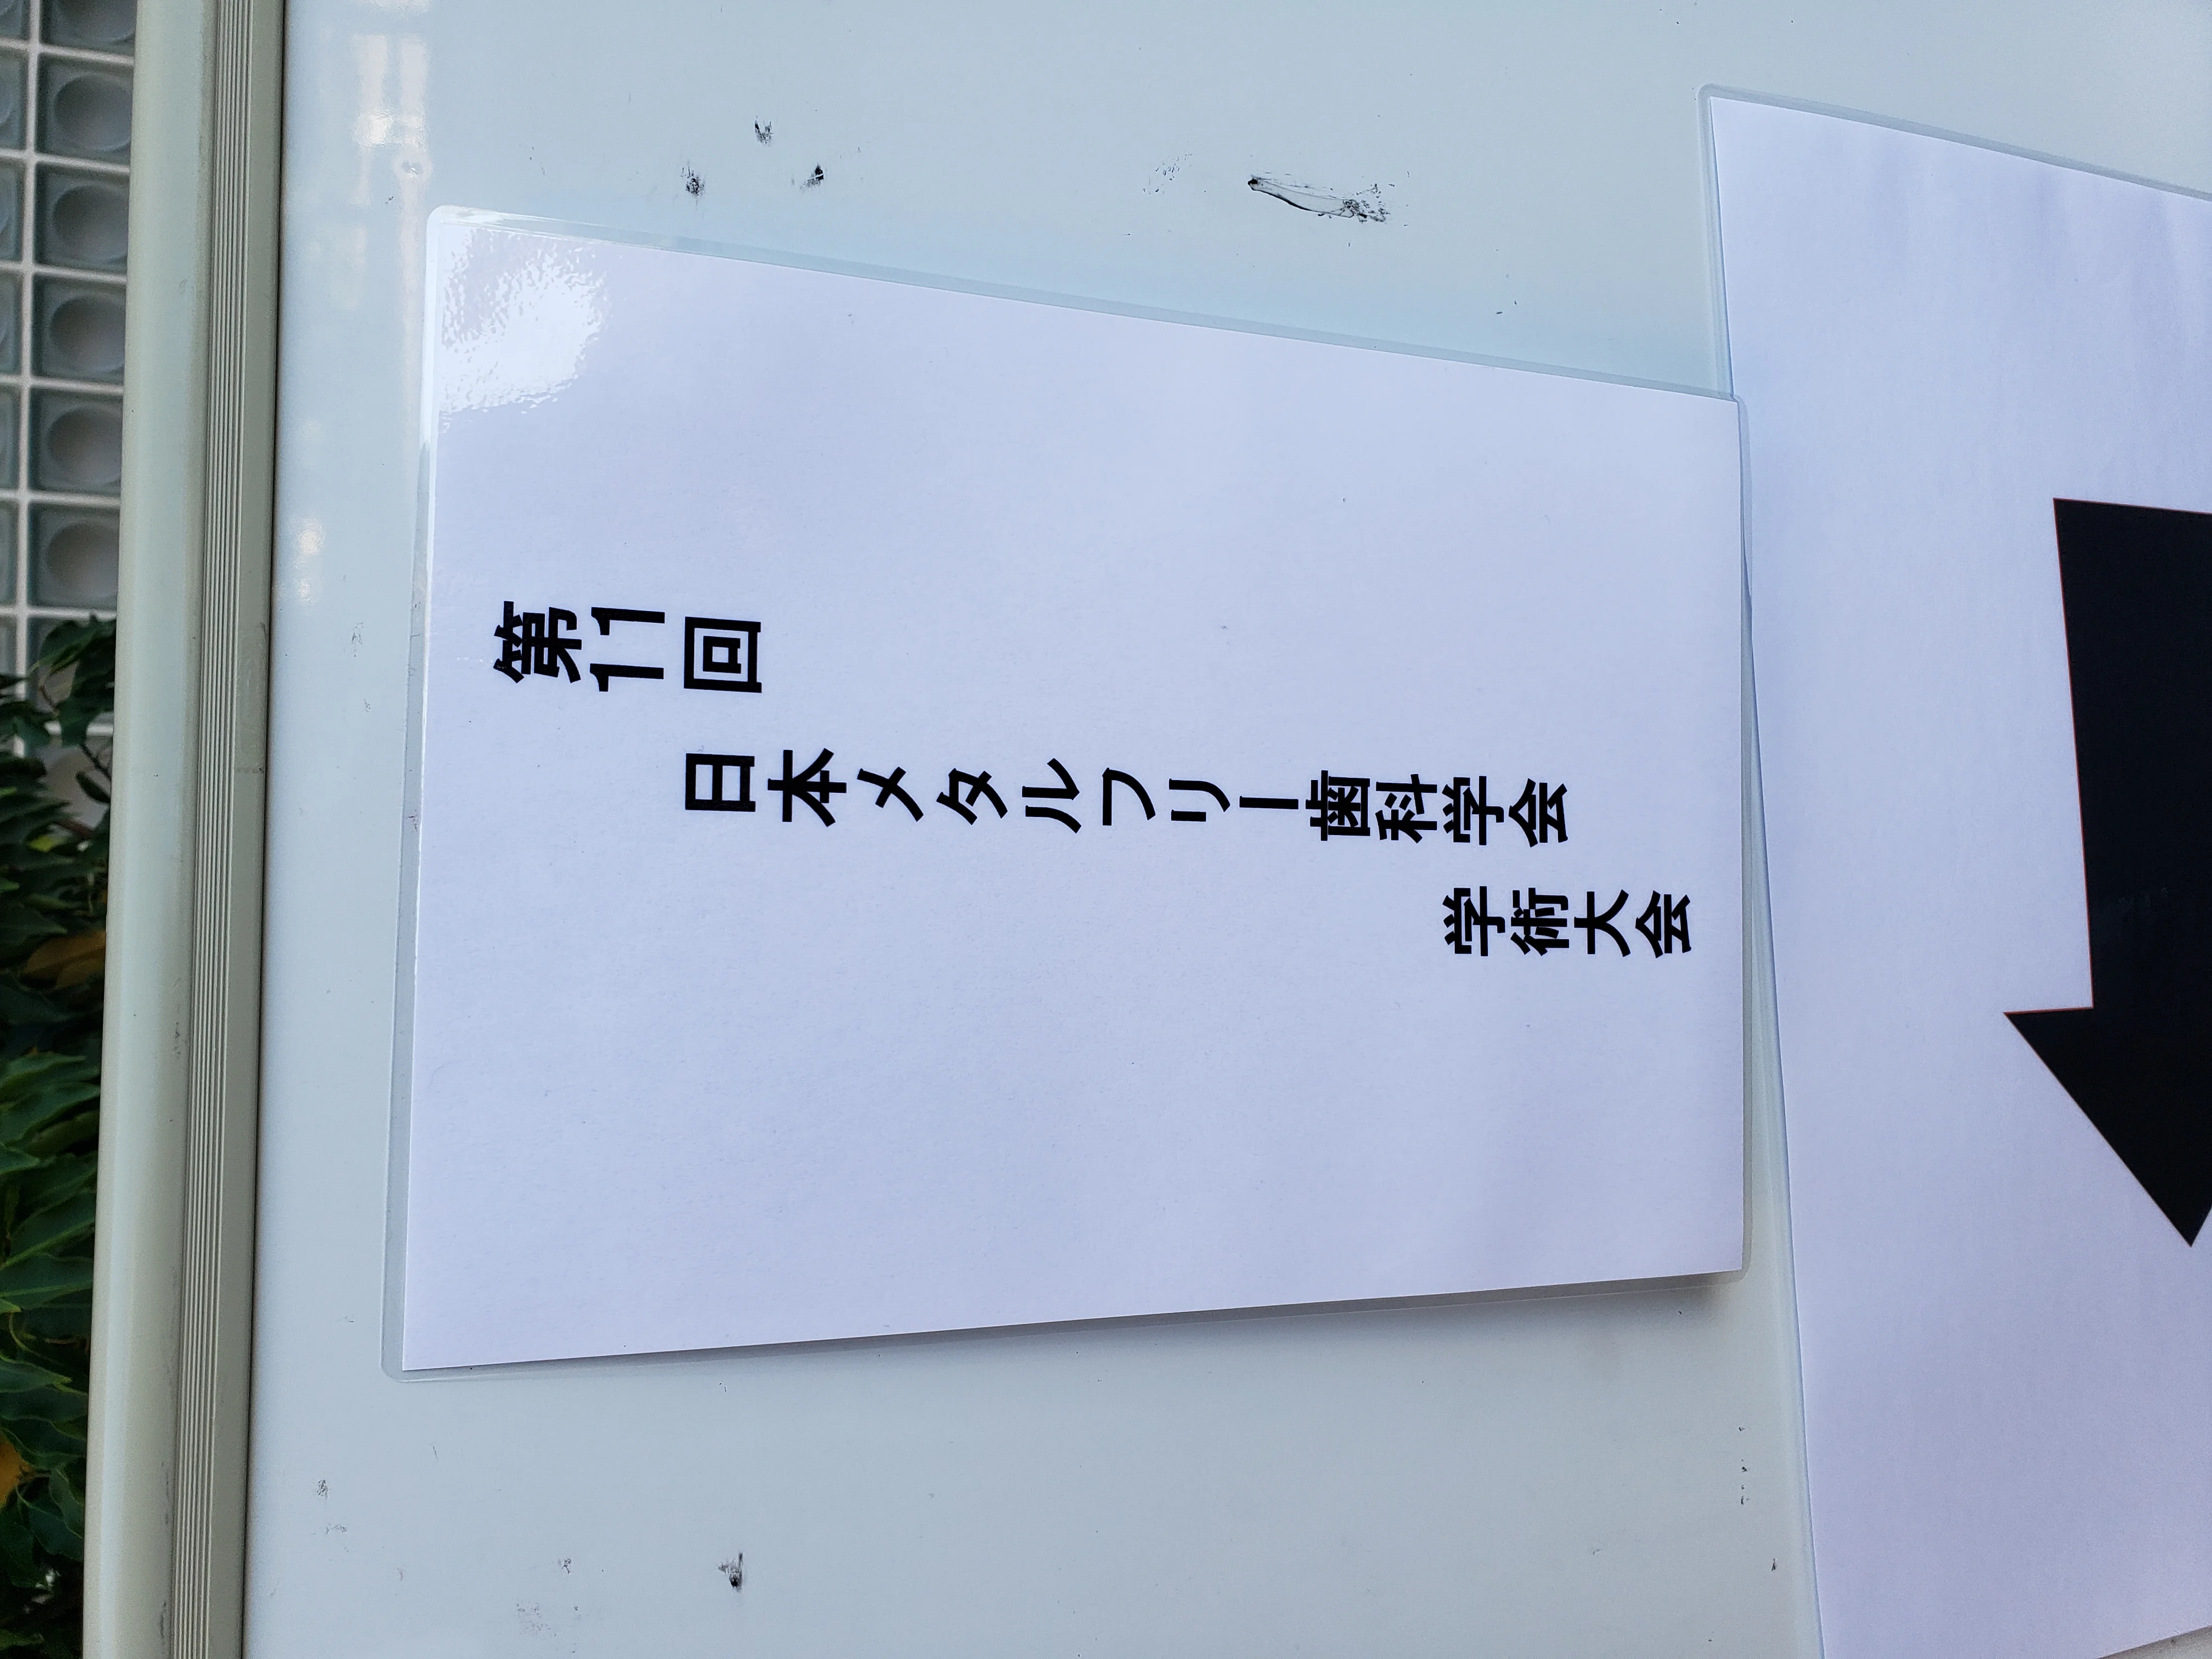 第11回
日本メタルフリー歯科学会
学術大会